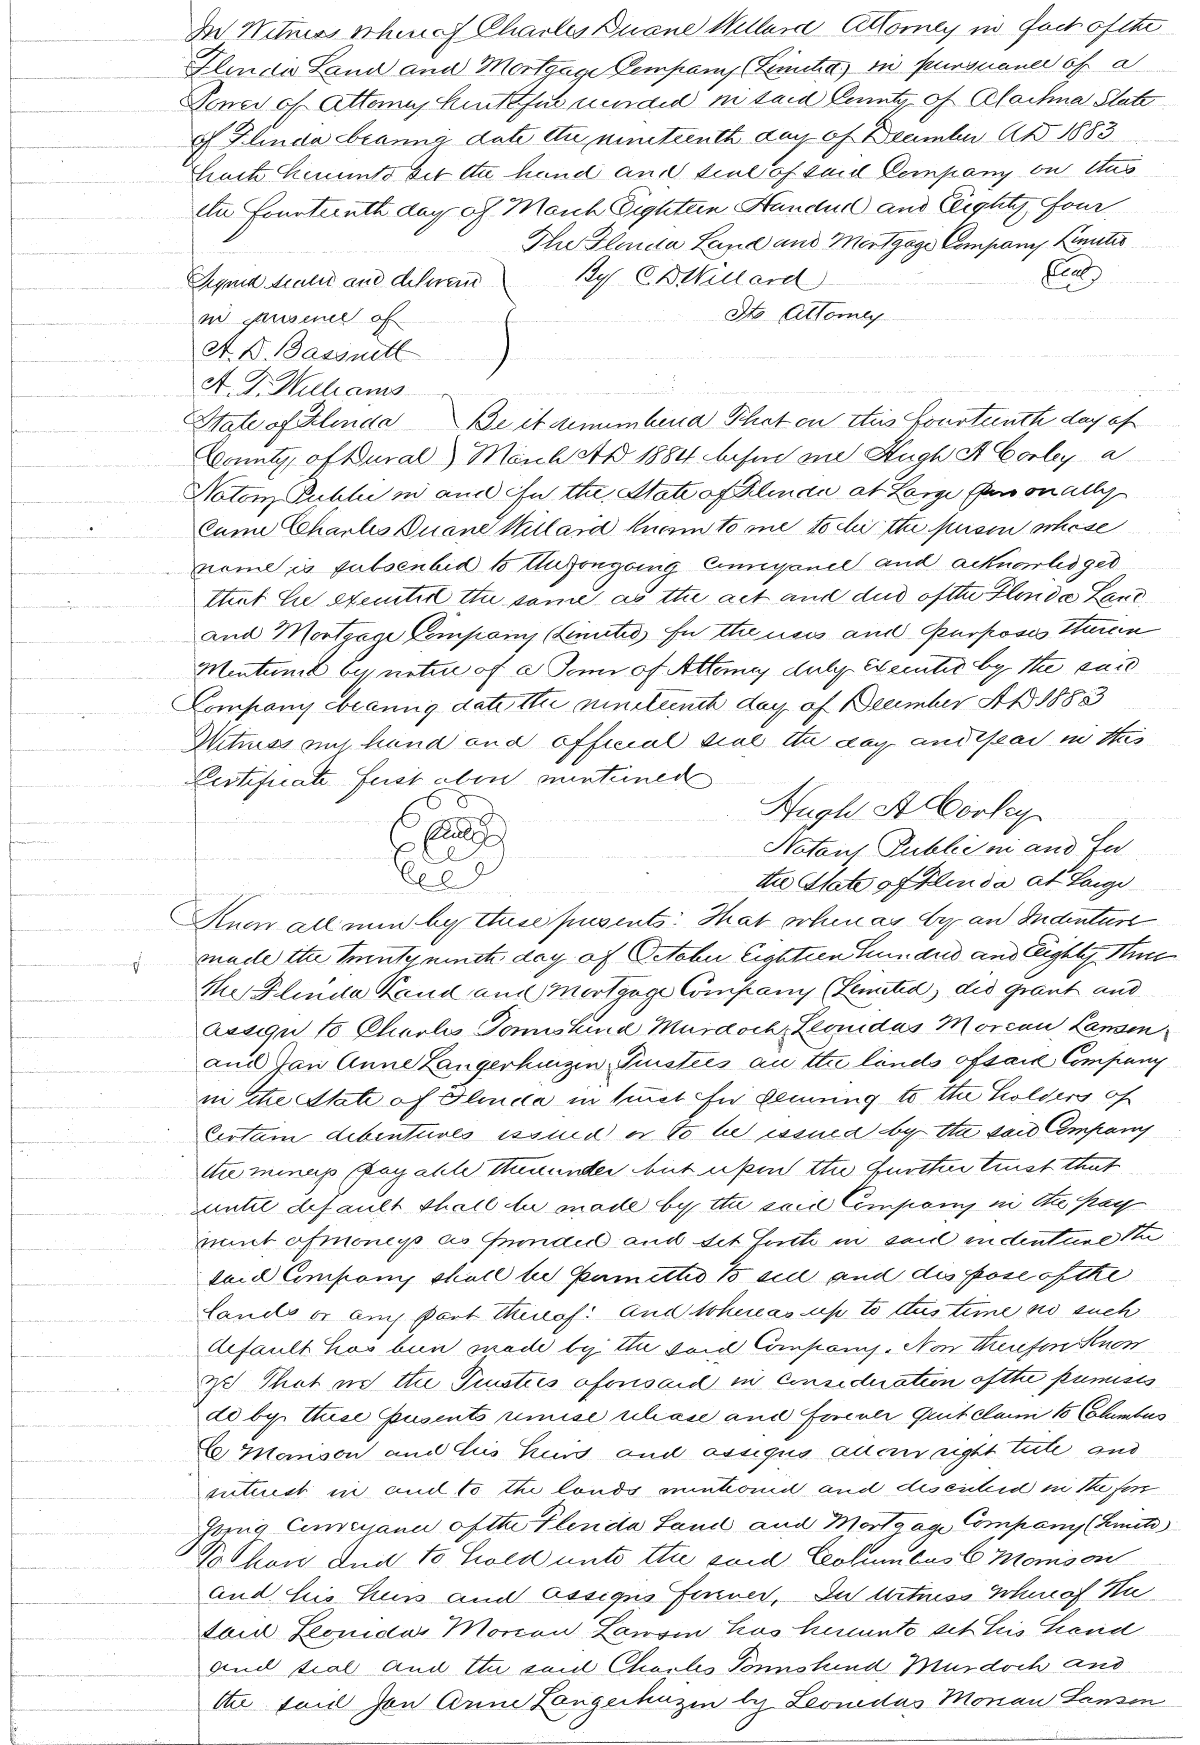 In Witness whereof Charles Duane Willard Attorney in fact of the
Florida Land and Mortgage Company (Limited) in pursuance of a
Power of Attorney heretofore recorded in said County of Alachua State
of Florida bearing date the nineteenth day of December AD 1883
hath hereunto set the hand and seal of said Company on this
the fourteenth day of March Eighteen Hundred and Eighty four
The Florida Land and Mortgage Company Limited
Signed sealed and delivered By C D Willard (Seal)
in presence of Its Attorney
A. D. Bassnett
A. T. Williams
State of Florida Be it remembered That on this fourteenth day of
County of Duval ) March AD 1884 before me Hugh A Corley a
Notary Public in and for the State of Florida at Large personally
Came Charles Duane Willard known to me to be the person whose
name is subscribed to the foregoing Conveyance and acknowledged
that he executed the same as the act and deed of the Florida Land
and Mortgage Company (Limited) for the uses and purposes therein
Mentioned by virtue of a Power of Attorney duly Executed by the said
Company bearing date the nineteenth day of December AD 1883
Witness my hand and official seal the day and year in this
Certificate first above mentioned
Hugh A Corley
(Seal) Notary Public in and for
the State of Florida at Large
Know all men by these presents: That whereas by an Indenture
made the twenty ninth day of October Eighteen hundred and Eighty three
the Florida Land and Mortgage Company (Limited) did grant and
assign to Charles Townshend Murdoch, Leonidas Moreau Lawson,
and Jan Anne Langerhuizen Trustees all the lands of said Company
in the State of Florida in trust for securing to the holders of
Certain debentures issued or to be issued by the said Company
the moneys payable thereunder but upon the further trust that
until default shall be made by the said Company in the pay
ment of moneys as provided and set forth in said indenture the
said Company shall be permitted to sell and dispose of the
lands or any part thereof: And Whereas up to this time no such
default has been made by the said Company. Now therefore Know
ye That we the Trustees aforesaid in consideration of the premises
do by these presents remise release and forever quit claim to Columbus
C Morrison and his heirs and assigns all our right title and
interest in and to the lands mentioned and described in the fore
going Conveyance of the Florida Land and Mortgage Company (Limited)
To have and to hold unto the said Columbus C Morrison
and his heirs and assigns forever, In Witness Whereof the
said Leonidas Moreau Lawson has hereunto set his hand
and seal and the said Charles Townshend Murdoch and
the said Jan Anne Langerhuizen by Leonidas Moreau Lawson